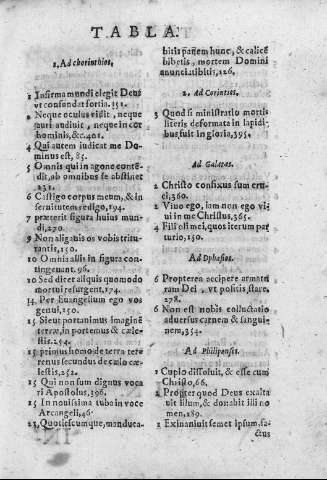 TABLA.
1. Ad chorinthios,
1 Infirma mundi elegit Deus
vt confundat fortia. 351.
2 Neque oculus vidit, neque
auri audiuit, neque in cor
hominis, &c. 401.
4 Qui autem iudicat me Do
minus est, 85.
5 Omnis qui in agone conten
dit, ab omnibus se abstinet
231.
6 Castigo corpus meum, & in
seruitutem redigo, 194.
7 præterit figura huius mun
di, 270.
9 Non aligabis os vobis tritu
rantis, 150.
10 Omnia illis in figura con-
tingentant. 96.
10 Sed dicet aliquis quomodo
mortui resurgent, 174.
14 Per Euangelium ego vos
genui, 250.
15 Sicut portauimus imaginē
terræ, in portemus & cæle-
stis. 254.
15 primus homo de terra terre
renus secundus de cælo cæ-
lestis, 252.
15 Qui non sum dignus voca
ri Apostolus, 396.
15 In nouissima tuba in voce
Arcangeli, 46.
23 Quotiescumque, manduca-
bitis panem hunc, & calicē
bibetis, mortem Domini
anunciatibitis, 126.
2. Ad Corintios.
3 Quod si ministratio mortis
literis deformata in lapidi-
bus, fuit in gloria, 395.
Ad Galatas.
2 Christo confixus sum cru-
ci, 360.
2 Viuo ego, iam non ego vi
ui in me Christus, 365.
4 Filioli mei, quos iterum par
turio, 150.
Ad Ephesios.
6 Propterea accipere armatu
ram Dei, vt positis, stare,
278.
6 Non est nobis colluctatio
aduersus carnem & sangui-
nem, 354.
Ad Philipenses.
1 Cupio dissoluit, & esse cum
Christo, 66.
2 Propter quod Deus exalta
uit illum, & donabit illi no
men, 289.
1 Exinaniuit semet ipsum, fa-
ctus